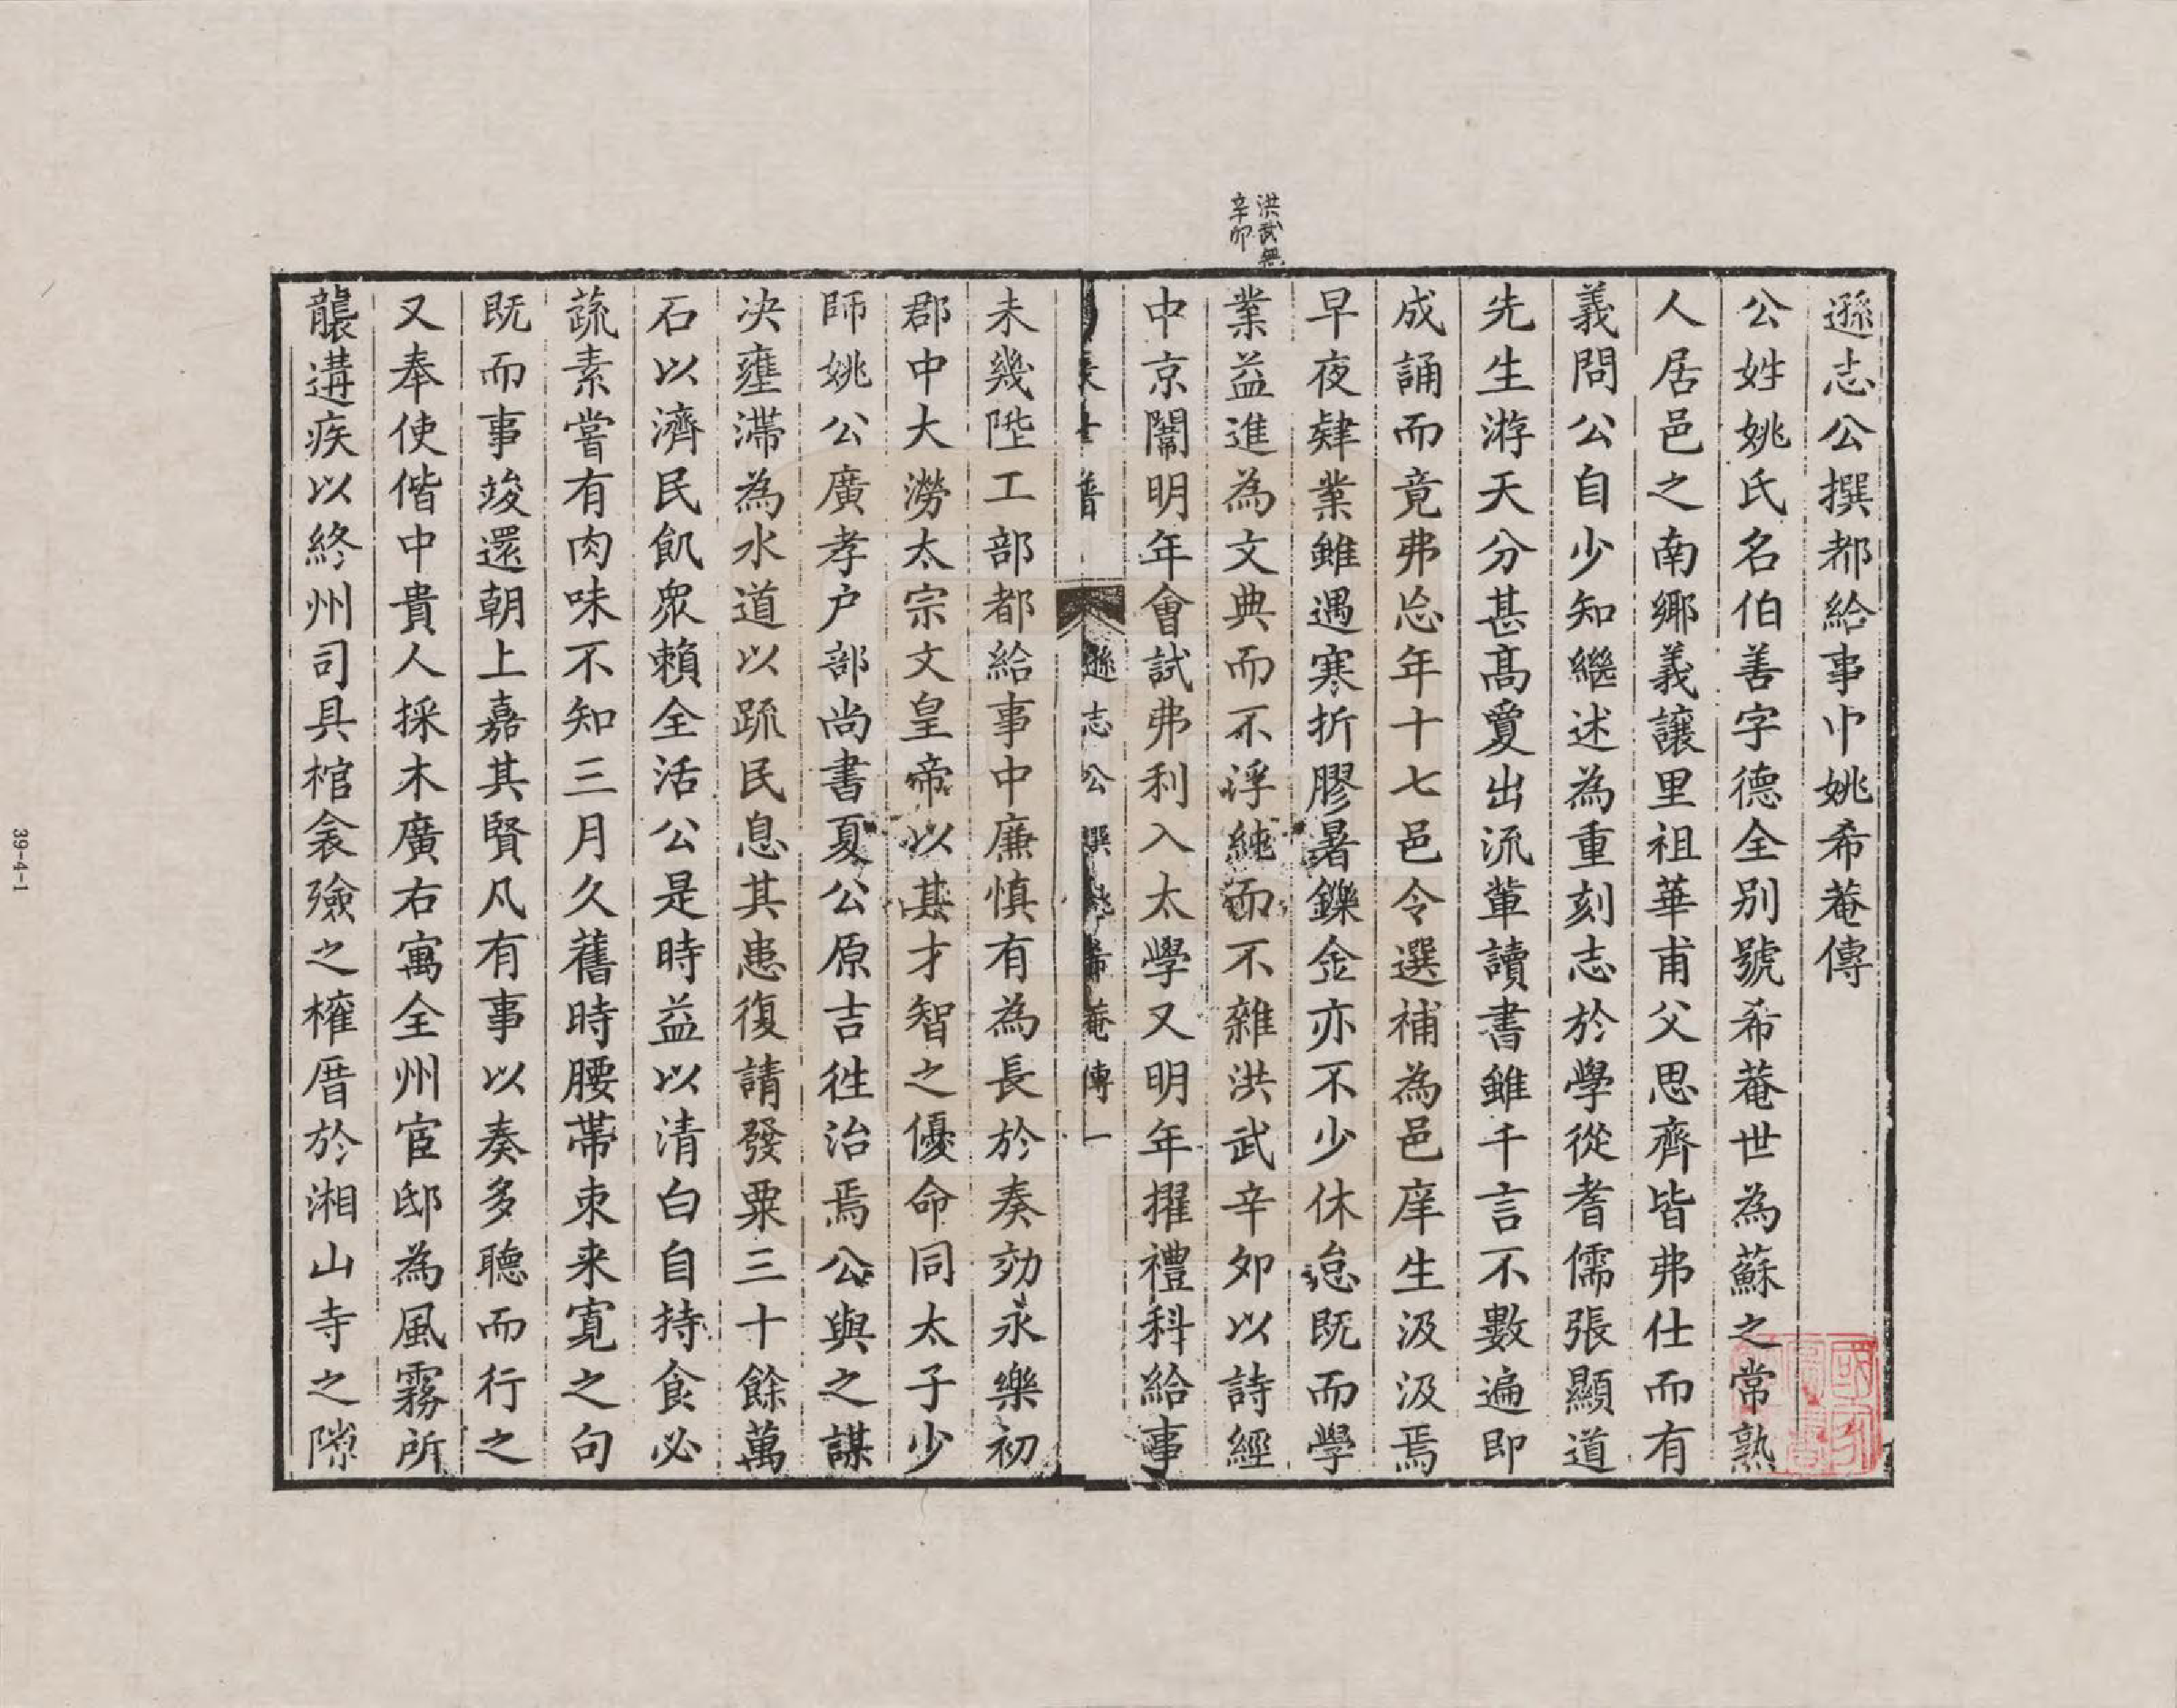 洪武無
辛卯
遜志公撰都給事中姚希菴傳
公姓姚氏名伯善字德全别號希菴世為蘇之常熟
人居邑之南鄉義讓里祖華甫父思齊皆弗仕而有
義問公自少知繼述為重刻志於學從耆儒張顯道
先生游天分甚高夐出流輩讀書雖千言不數遍即
成誦而竟弗忘年十七邑令選補為邑庠生汲汲焉
早夜肄業雖遇寒折膠暑鑠金亦不少休怠既而學
業益進為文典而不浮純而不雜洪武辛夘以詩經
中京闈明年會試弗利入太學又明年擢禮科給事
遜志公撰姚希菴傳 一
未幾陞工部都給事中廉慎有為長於奏効永樂初
郡中大澇太宗文皇帝以其才智之優命同太子少
師姚公廣孝户部尚書夏公原吉徃治焉公與之謀
决壅滯為水道以疏民息其患復請發粟三十餘萬
石以濟民飢衆賴全活公是時益以清白自持食必
蔬素嘗有肉味不知三月久舊時腰帶束来寬之句
既而事竣還朝上嘉其賢凡有事以奏多聽而行之
又奉使偕中貴人採木廣右寓全州宦邸為風霧所
襲遘疾以終州司具棺衾殮之榷厝於湘山寺之隙
39-4-1